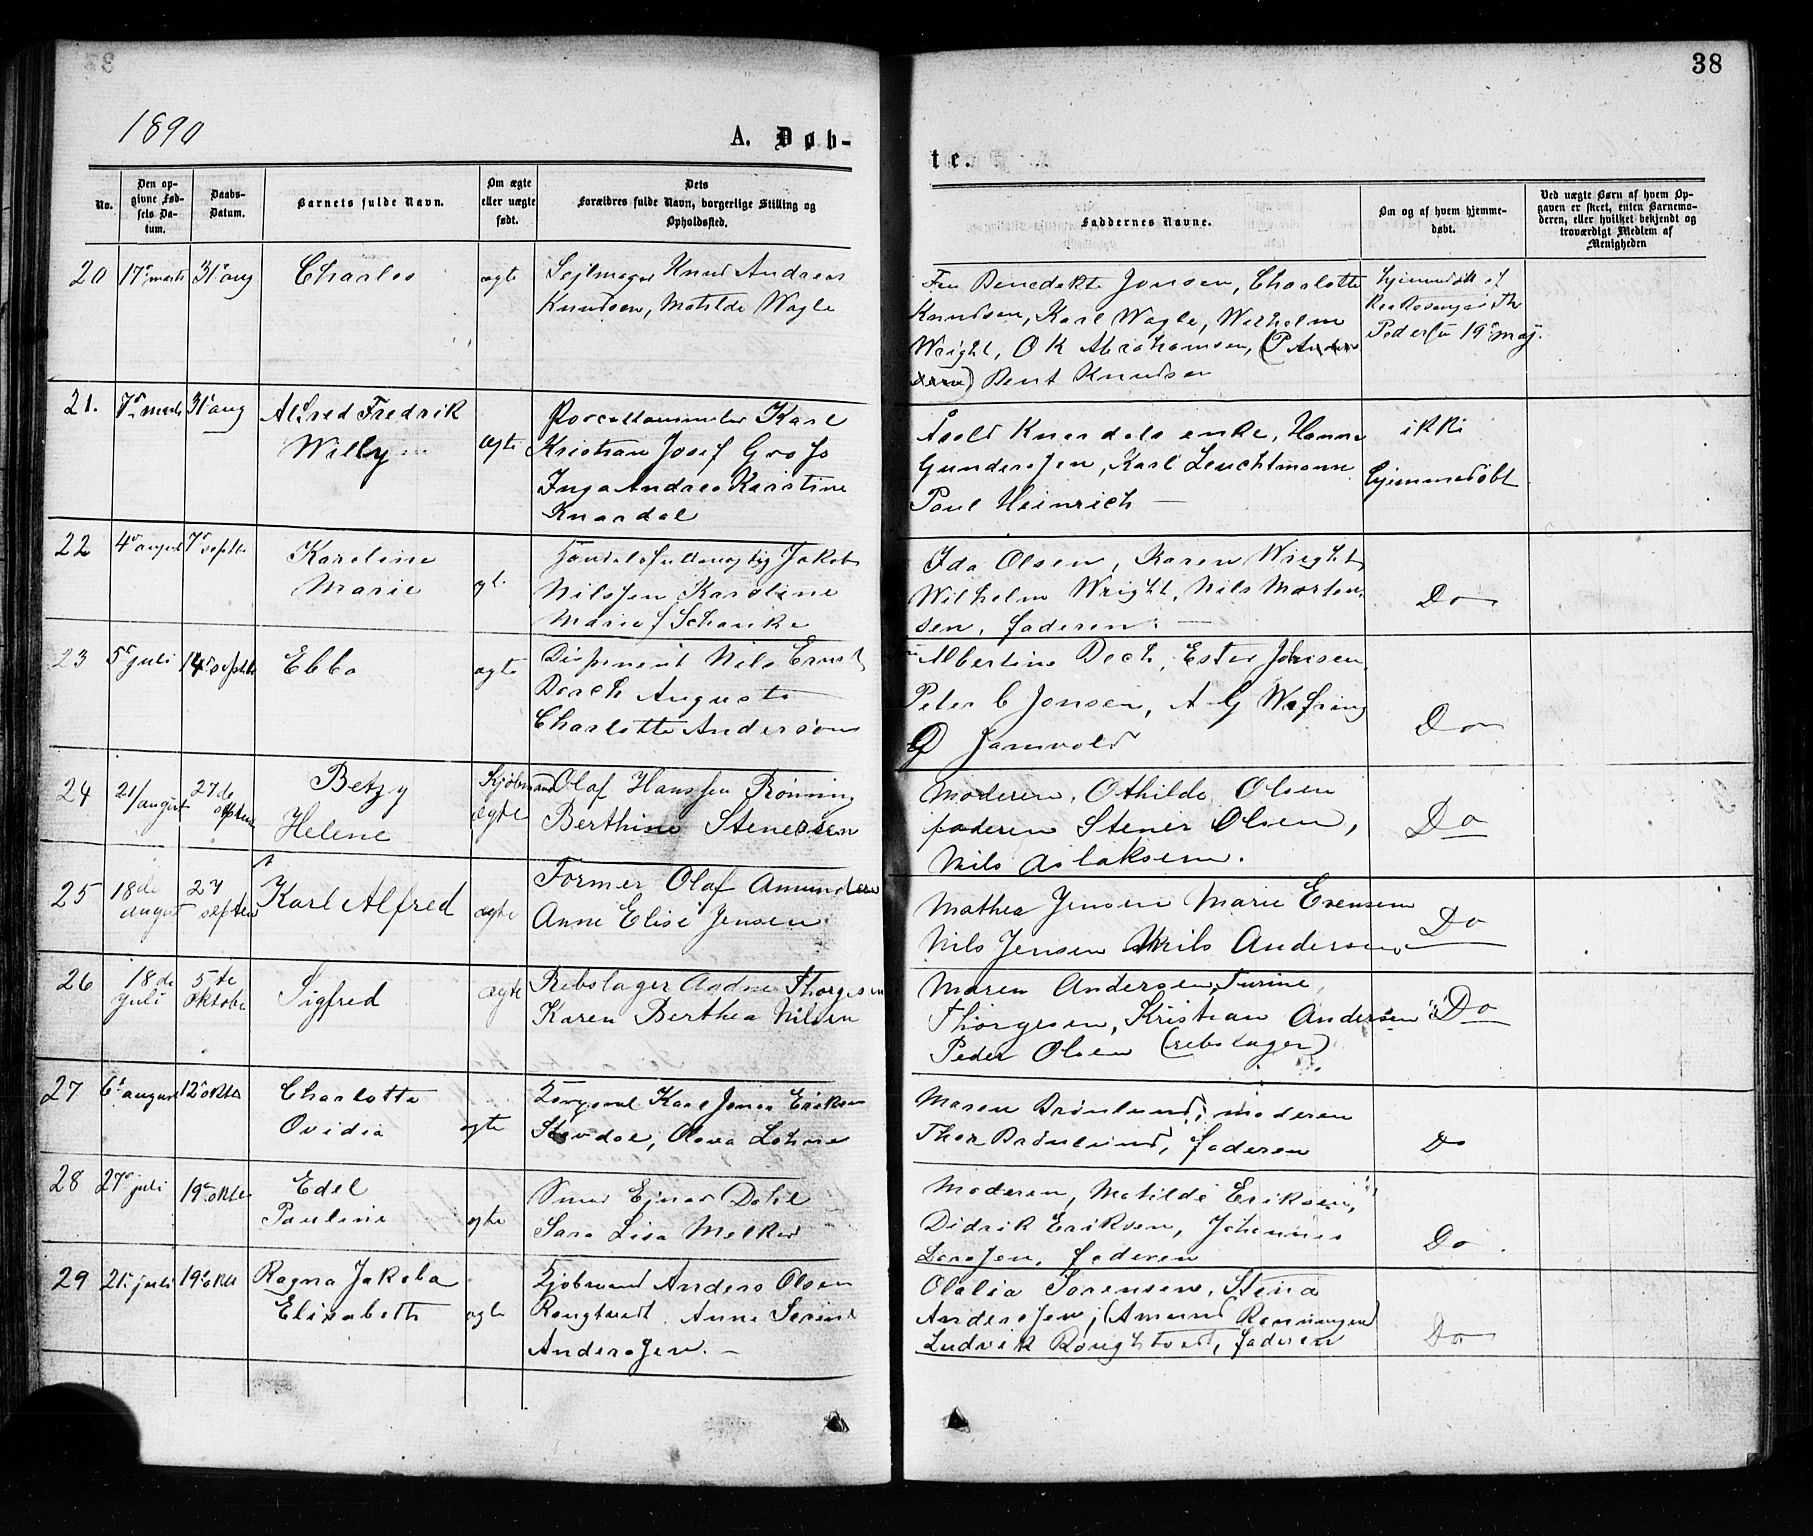 38
1890
A. Døb-
te.
No.
Den op-
givne Fød-
sels Da-
tum.
Daabs-
Datum.
Barnets fulde Navn.
Om ægte
eller uægte
født.
Dets
Forældres fulde Navn, borgerlige Stilling og
Opholdssted.
Faddernes Navne.
Om og af hvem hjemme-
døbt.
Ved uægte Børn af hvem Op-
gaven er skret, enten Barnemo-
deren, eller hvilket bekjendt og
troværdigt Medlem af
Menigheden
20 17de marts 31te aug Charles ægte
Sejlmager Knud Andreas
Knudsen, Matilde Wagle
Fru Benedikte Jonsen, Charlotte
Knudsen, Karl Wagle, Wilhelm
Wright, O K Abrahamsen, (P Ander
Bent Knudsen
hjemmedøbt af
Th
19de maj.
21. 7de marts 31te aug Alfred Fredrik
Willy ægte
Karl
Kristian Josef
Inga Andrea Karstine
Knardal
Knardals enke, Hanna
Gundersen, Karl Leuchtmann
Paul Heinrich —
ikke
hjemmedøbt
22 4de august 7de septbr Karoline
Marie ægt.
Jakob
Nilssen Karoline
Marie f Schanke
Ida Olsen, Karen Wright,
Wilhelm Wright, Nils Morten-
sen, faderen. —
Do
23 5te juli 14de septbr Ebba ægte
Disponent Nils Ernst
Augusta
Charlotte Anderson
Albertine Dech, Ester Johnsen
Peter C Jonsen, A G
Jamvold
Do
24 21/august 27de septem Betzy
Helene
Kjøbmand
ægte
Olaf Hanssen Rönning
Berthine Stenersen
Moderen, Othilde Olsen
faderen Stener Olsen,
Nils Aslaksen.
Do
25 18de august 27 septem Karl Alfred ægte
Former Olaf Amundsen
Anne Elise Jensen
Mathea Jensen Marie Evensen
Nils Jensen Nils Andersen
Do
26 18de juli 5te oktober Sigfred ægte
Rebslager Thorgesen
Karen Berthea Nilsen
Maren Andersen, Turine,
Thorgesen, Kristian Andersen
Peder Olsen (rebslager)
Do
27 6te august 12te oktbr Charlotte
Ovidia ægte
Karl Eriksen
Olava
Maren Brönlund, moderen
Thor Brönlund, faderen
Do
28 27de juli 19de oktbr Edel
Pauline ægte
Smed Ejnar Dahl
Sara Lisa Melker
Moderen, Matilde Eriksen,
Didrik Eriksen, Johannes
Larssen, faderen
Do.
29 21de juli 19de oktbr Ragna Jakoba
Elisabeth ægte
Kjøbmand Anders Olsen
Rougtvedt. Anna Serine
Anderssen. —
Olalia Sørensen, Stina
Anderssen, (Amund Renningen)
Ludvik Roughtvedt, faderen
Do